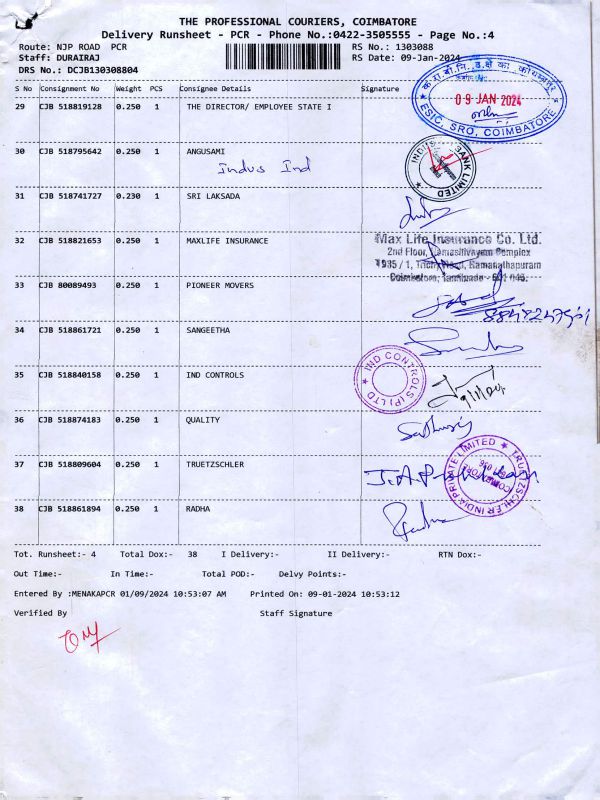 THE PROFESSIONAL COURIERS, COIMBATORE
Delivery Runsheet - PCR - Phone No.:0422-3505555 - Page No.:4
Route: NJP ROAD PCR
RS No.: 1303088
Staff: DURAIRAJ
RS Date: 09-Jan-2024
DRS No.: DCJB130308804
S No Consignment No Weight PCS Consignee Details Signature
29 CJB 518819128 0.250 1 THE DIRECTOR/ EMPLOYEE STATE I
09 JAN 2024
ESIC, SRO, COIMBATORE
30 CJB 518795642 0.250 1 ANGUSAMI
Indus Ind
INDUSIND BANK LIMITED
31 CJB 518741727 0.230 1 SRI LAKSADA
32 CJB 518821653 0.250 1 MAXLIFE INSURANCE
Max Life Insurance Co. Ltd.
2nd Floor, Damasithvayam Complex
1935 / 1, Trichy Road, Ramanathapuram
Coimbatore, Tamilnadu - 641 045.
33 CJB 80089493 0.250 1 PIONEER MOVERS
34 CJB 518861721 0.250 1 SANGEETHA
35 CJB 518840158 0.250 1 IND CONTROLS
IND CONTROLS (P) LTD
36 CJB 518874183 0.250 1 QUALITY
37 CJB 518809604 0.250 1 TRUETZSCHLER
TRUETZSCHLER INDIA PRIVATE LIMITED
38 CJB 518861894 0.250 1 RADHA
Radha
Tot. Runsheet:- 4 Total Dox:- 38 I Delivery:- II Delivery:- RTN Dox:-
Out Time:- In Time:- Total POD:- Delvy Points:-
Entered By :MENAKAPCR 01/09/2024 10:53:07 AM Printed On: 09-01-2024 10:53:12
Verified By Staff Signature